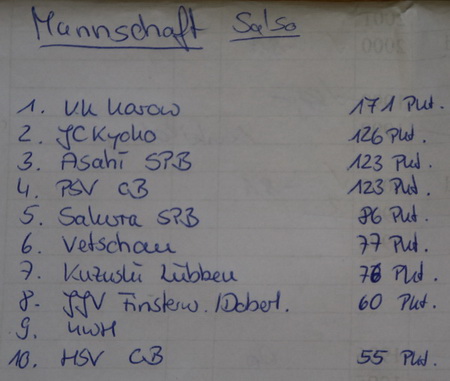 Mannschaft Salsa
1. VK Karow 171 Pkt.
2. JC Kyoko 126 Pkt.
3. Asahi SPB 123 Pkt.
4. PSV CB 123 Pkt.
5. Sakura SPB 86 Pkt.
6. Vetschau 77 Pkt.
7. Kuzushi Lübben 76 Pkt.
8. JJV Finsterw./Doberl. 60 Pkt.
9. KWH
10. HSV CB 55 Pkt.